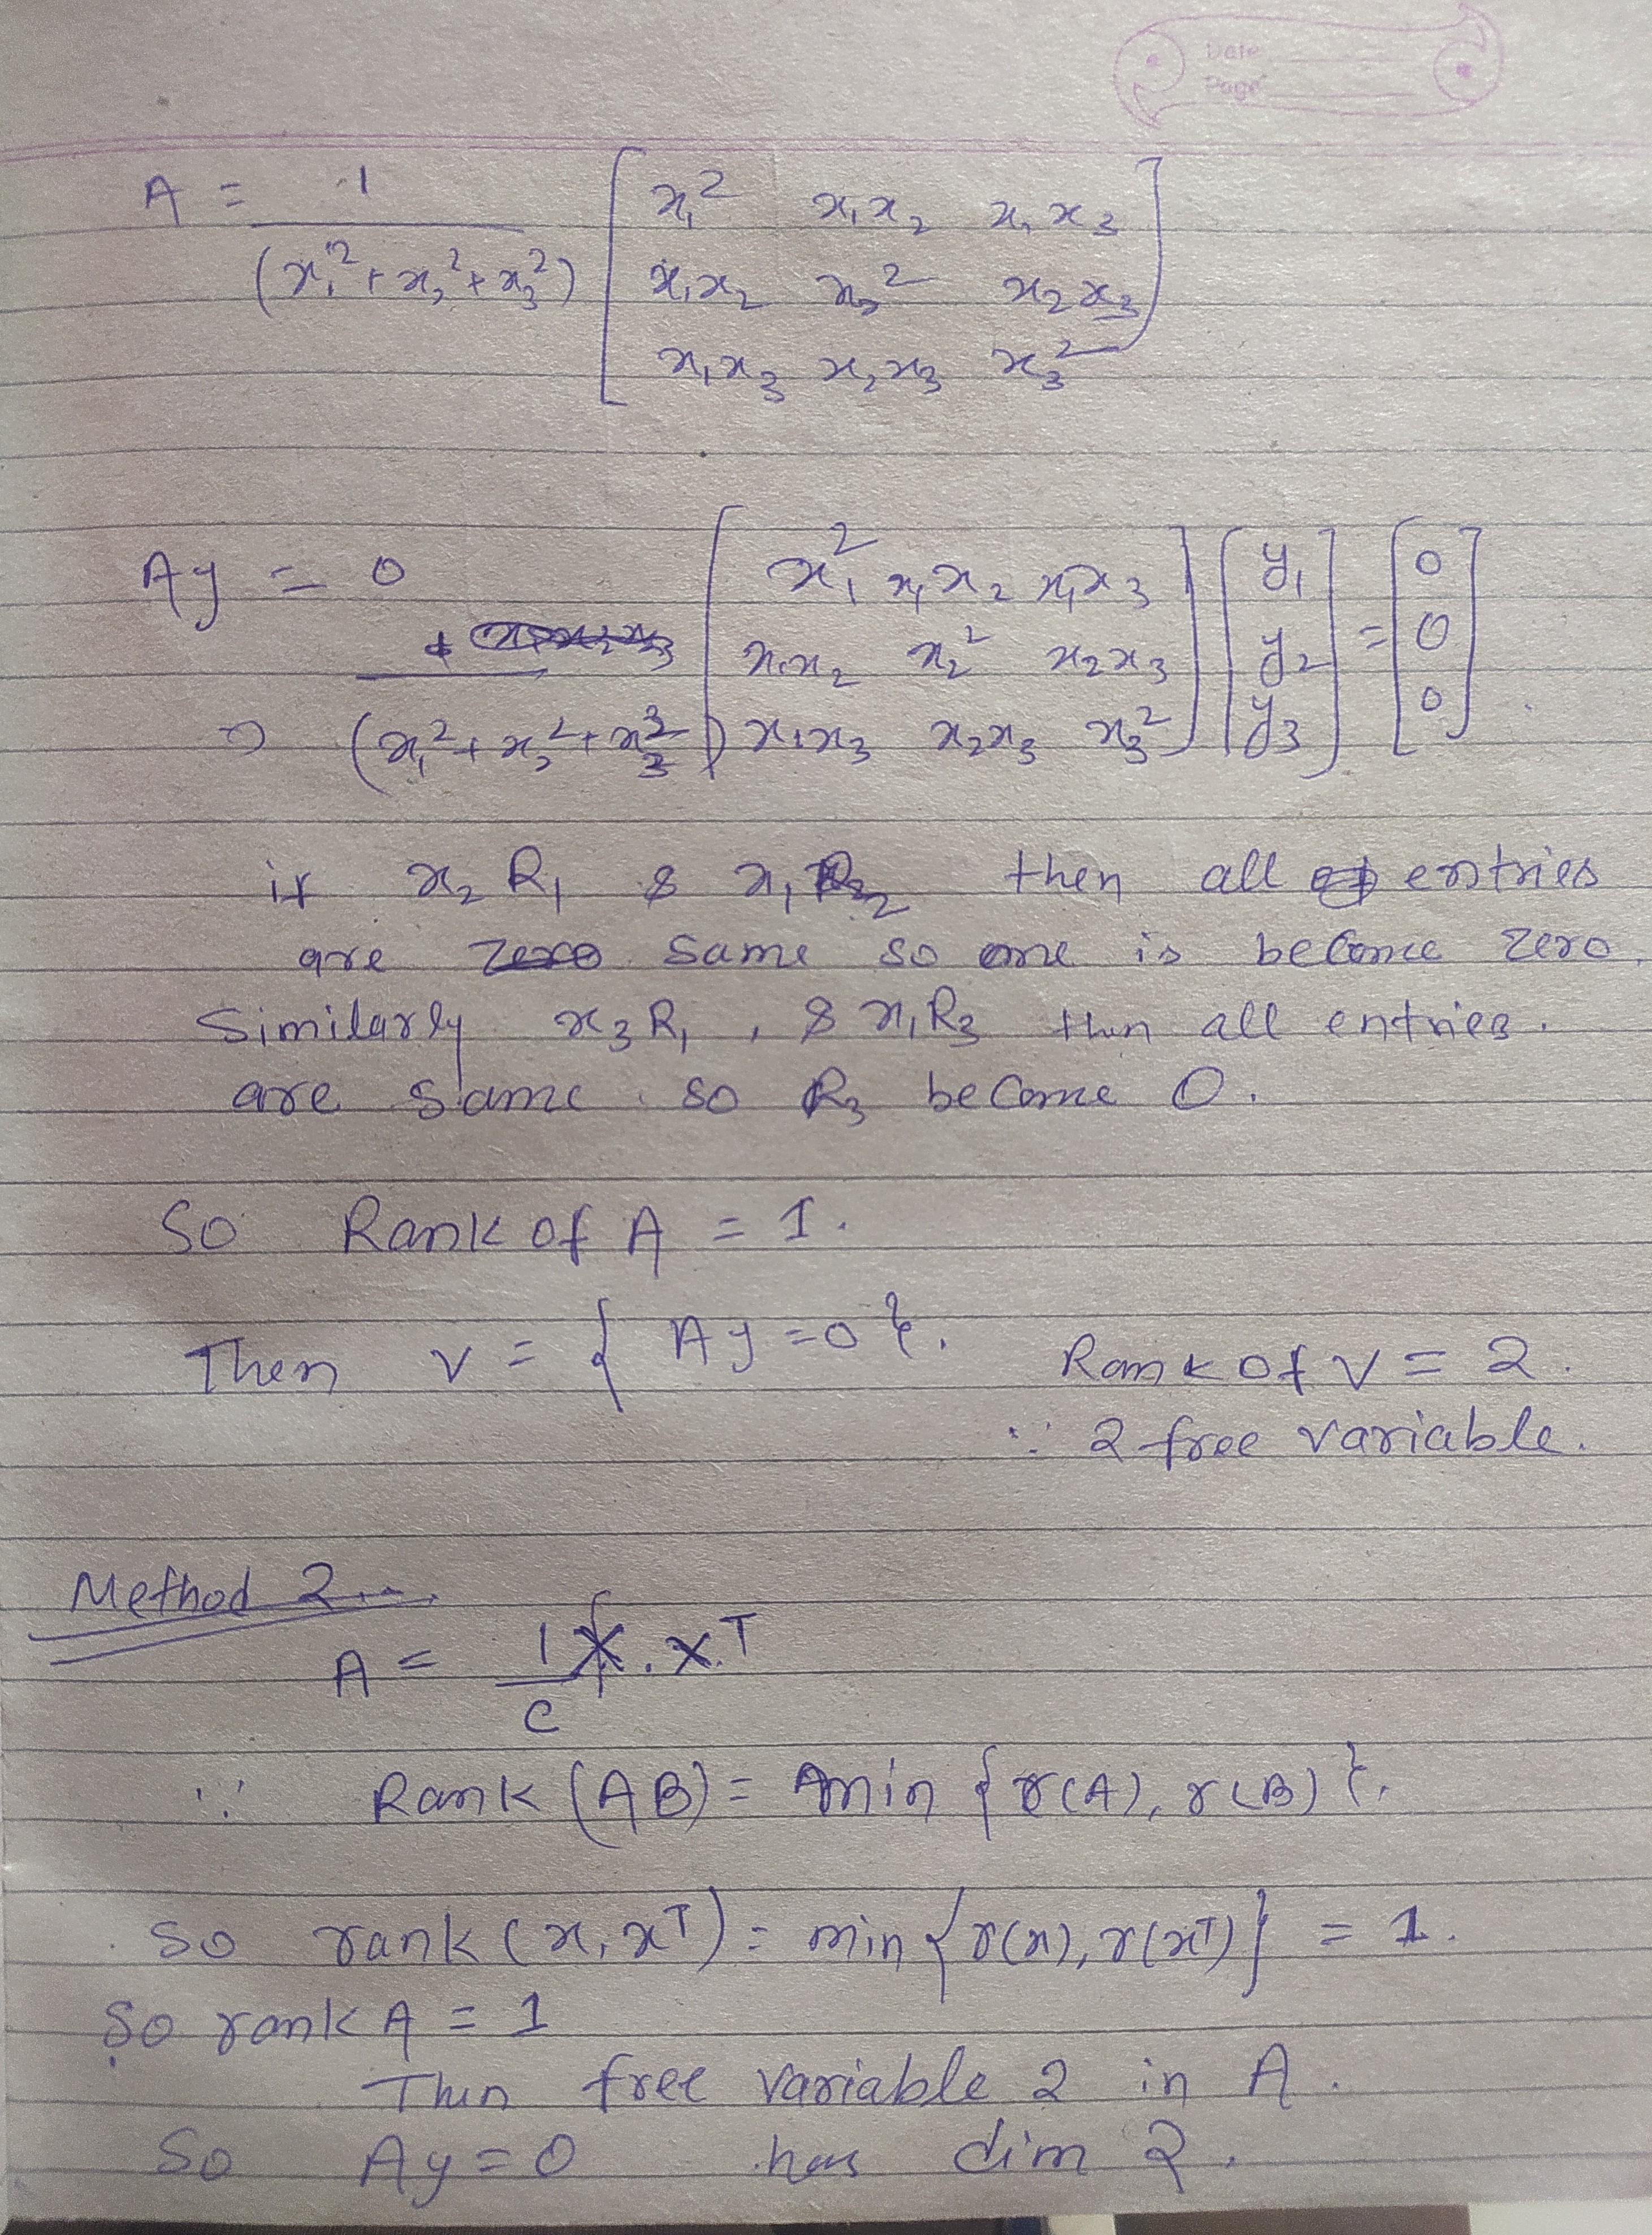 Date
Page
A = 1 / (x₁² + x₂² + x₃²) [ x₁² x₁x₂ x₁x₃
x₁x₂ x₂² x₂x₃
x₁x₃ x₂x₃ x₃² ]
Ay = 0
⇒ 1 / (x₁² + x₂² + x₃²) [ x₁² x₁x₂ x₁x₃
x₁x₂ x₂² x₂x₃
x₁x₃ x₂x₃ x₃² ] [ y₁ y₂ y₃ ] = [ 0 0 0 ]
if x₂ R₁ & x₁ R₂ then all entries
are same so one is become zero.
Similarly x₃ R₁, & x₁ R₃ then all entries.
are same. so R₃ become 0.
So Rank of A = 1.
Then V = { Ay = 0 }. Rank of V = 2.
∵ 2 free variable.
Method 2
A = 1/c X. X.ᵀ
∵ Rank (AB) = min { r(A), r(B) }.
So rank (x, xᵀ) = min { r(x), r(xᵀ) } = 1.
So rank A = 1
Then free variable 2 in A.
So Ay = 0 has dim 2.